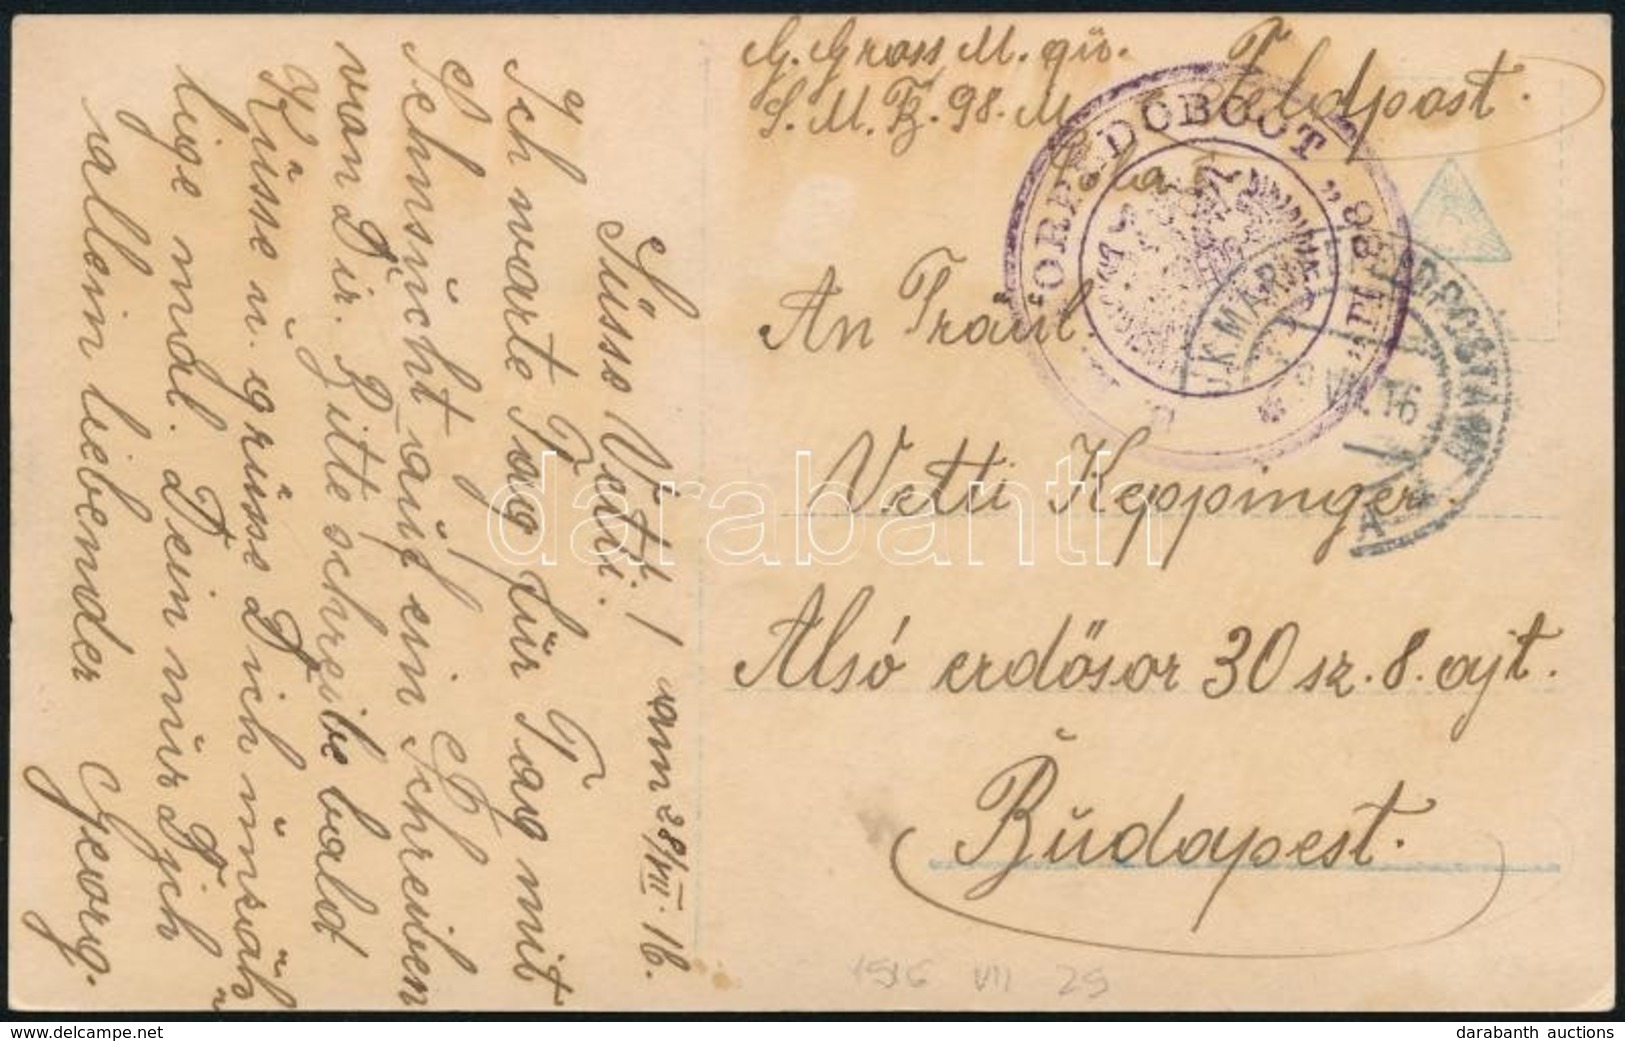 G. Gross M. qū.
S. M. Tz. 98. M.
Pola
Feldpost.
TORPEDOBOOT „98 M"
K.U.K. MARINEFELDPOSTAMT
VII. 16
A
An Fräul
Vetti Keppinger
Alsó erdősor 30 sz. 8. ajt.
Budapest.
1916 VII 29
am 28/VII. 16.
Süsse Vetti!
Ich warte Tag für Tag mit
Sehnsucht auf ein Schreiben
von Dir. Bitte schreibe bald
Küsse u. grüsse Dich unzäh
lige mal. Dein nur Dich
allein liebender Georg.
darabanth
darabanth auctions